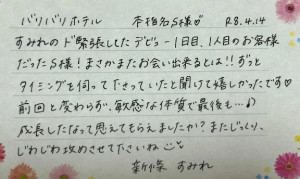 バリバリホテル 本指名S様♡ R8.4.14
すみれのド緊張してたデビュー1日目、1人目のお客様
だったS様！まさかまたお会い出来るとは!!ずっと
タイミングを伺って下さっていたと聞けて嬉しかったです♡
前回と変わらず、敏感な体質で最後も…♪
成長したなって思えてもらえましたか？またじっくり、
じわじわ攻めさせて下さいね
新條 すみれ